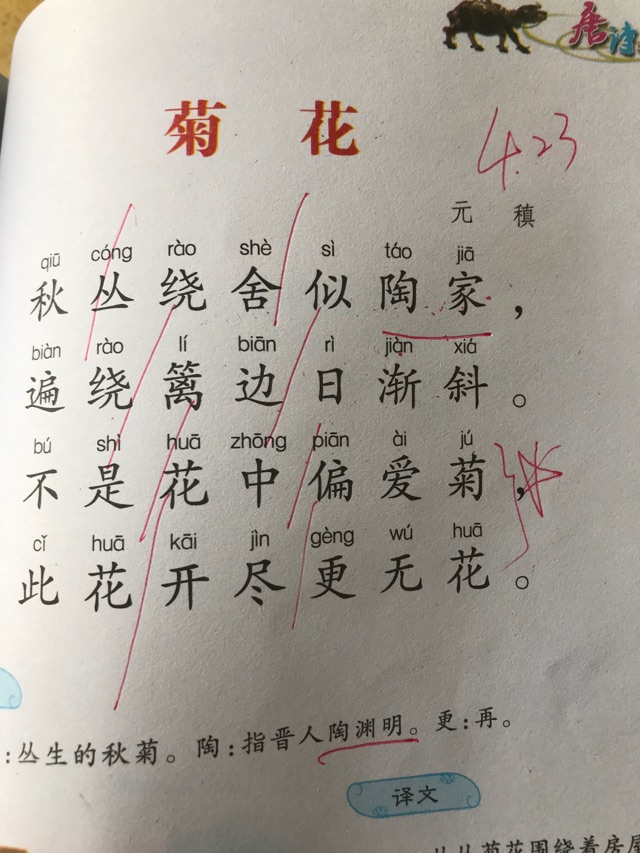 唐诗
菊 花
4.23
元 稹
qiū cóng rào shè sì táo jiā
秋丛绕舍似陶家，
biàn rào lí biān rì jiàn xiá
遍绕篱边日渐斜。
bú shì huā zhōng piān ài jú
不是花中偏爱菊，
cǐ huā kāi jìn gèng wú huā
此花开尽更无花。
:丛生的秋菊。陶:指晋人陶渊明。更:再。
译文
丛丛菊花围绕着房屋